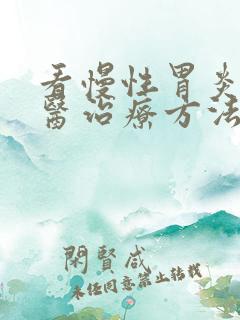 看慢性胃炎
醫治療方法
閑賢咸
未经同意禁止转载